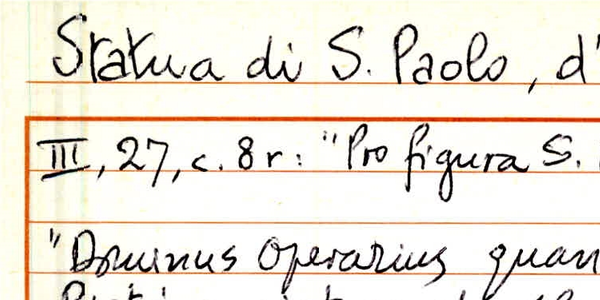 Statua di S. Paolo, d'
III, 27, c. 8 r: "Pro figura S.
"Dominus Operarius quan